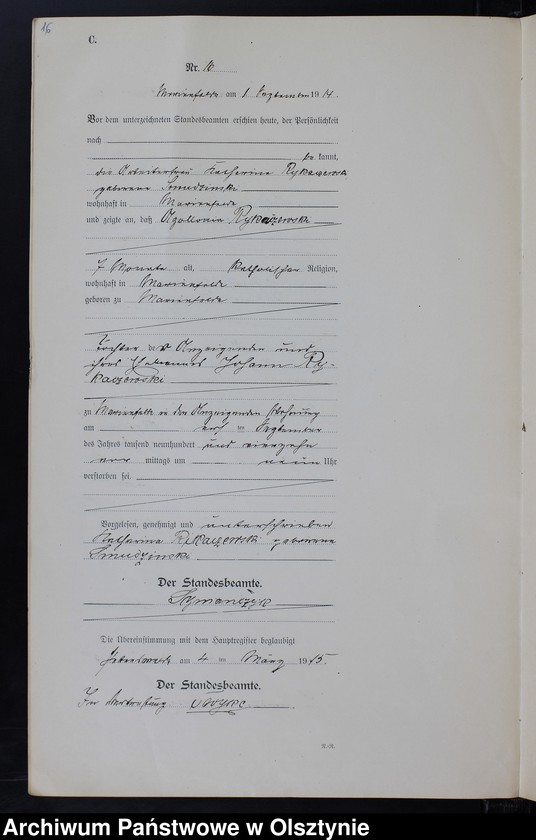 16
C.
Nr. 16
Marienfelde am 1 September 1914.
Vor dem unterzeichneten Standesbeamten erschien heute, der Persönlichkeit
nach
be kannt,
die Arbeiterfrau Katharina
geborene Smudzinski
wohnhaft in Marienfelde
und zeigte an, daß Apollonia
7 Monate alt, katholischer Religion,
wohnhaft in Marienfelde
geboren zu Marienfelde
Tochter der Anzeigenden und
ihres Ehemannes Johann
zu Marienfelde in der Anzeigenden Wohnung
am ersten September
des Jahres tausend neunhundert und vierzehn
vor mittags um neun Uhr
verstorben sei.
Vorgelesen, genehmigt und unterschrieben
Katharina geborene
Smudzinski
Der Standesbeamte.
Szymanczyk
Die Übereinstimmung mit dem Hauptregister beglaubigt
am 4 ten März 1915.
Der Standesbeamte.
In Vertretung
R.-R.
Archiwum Państwowe w Olsztynie